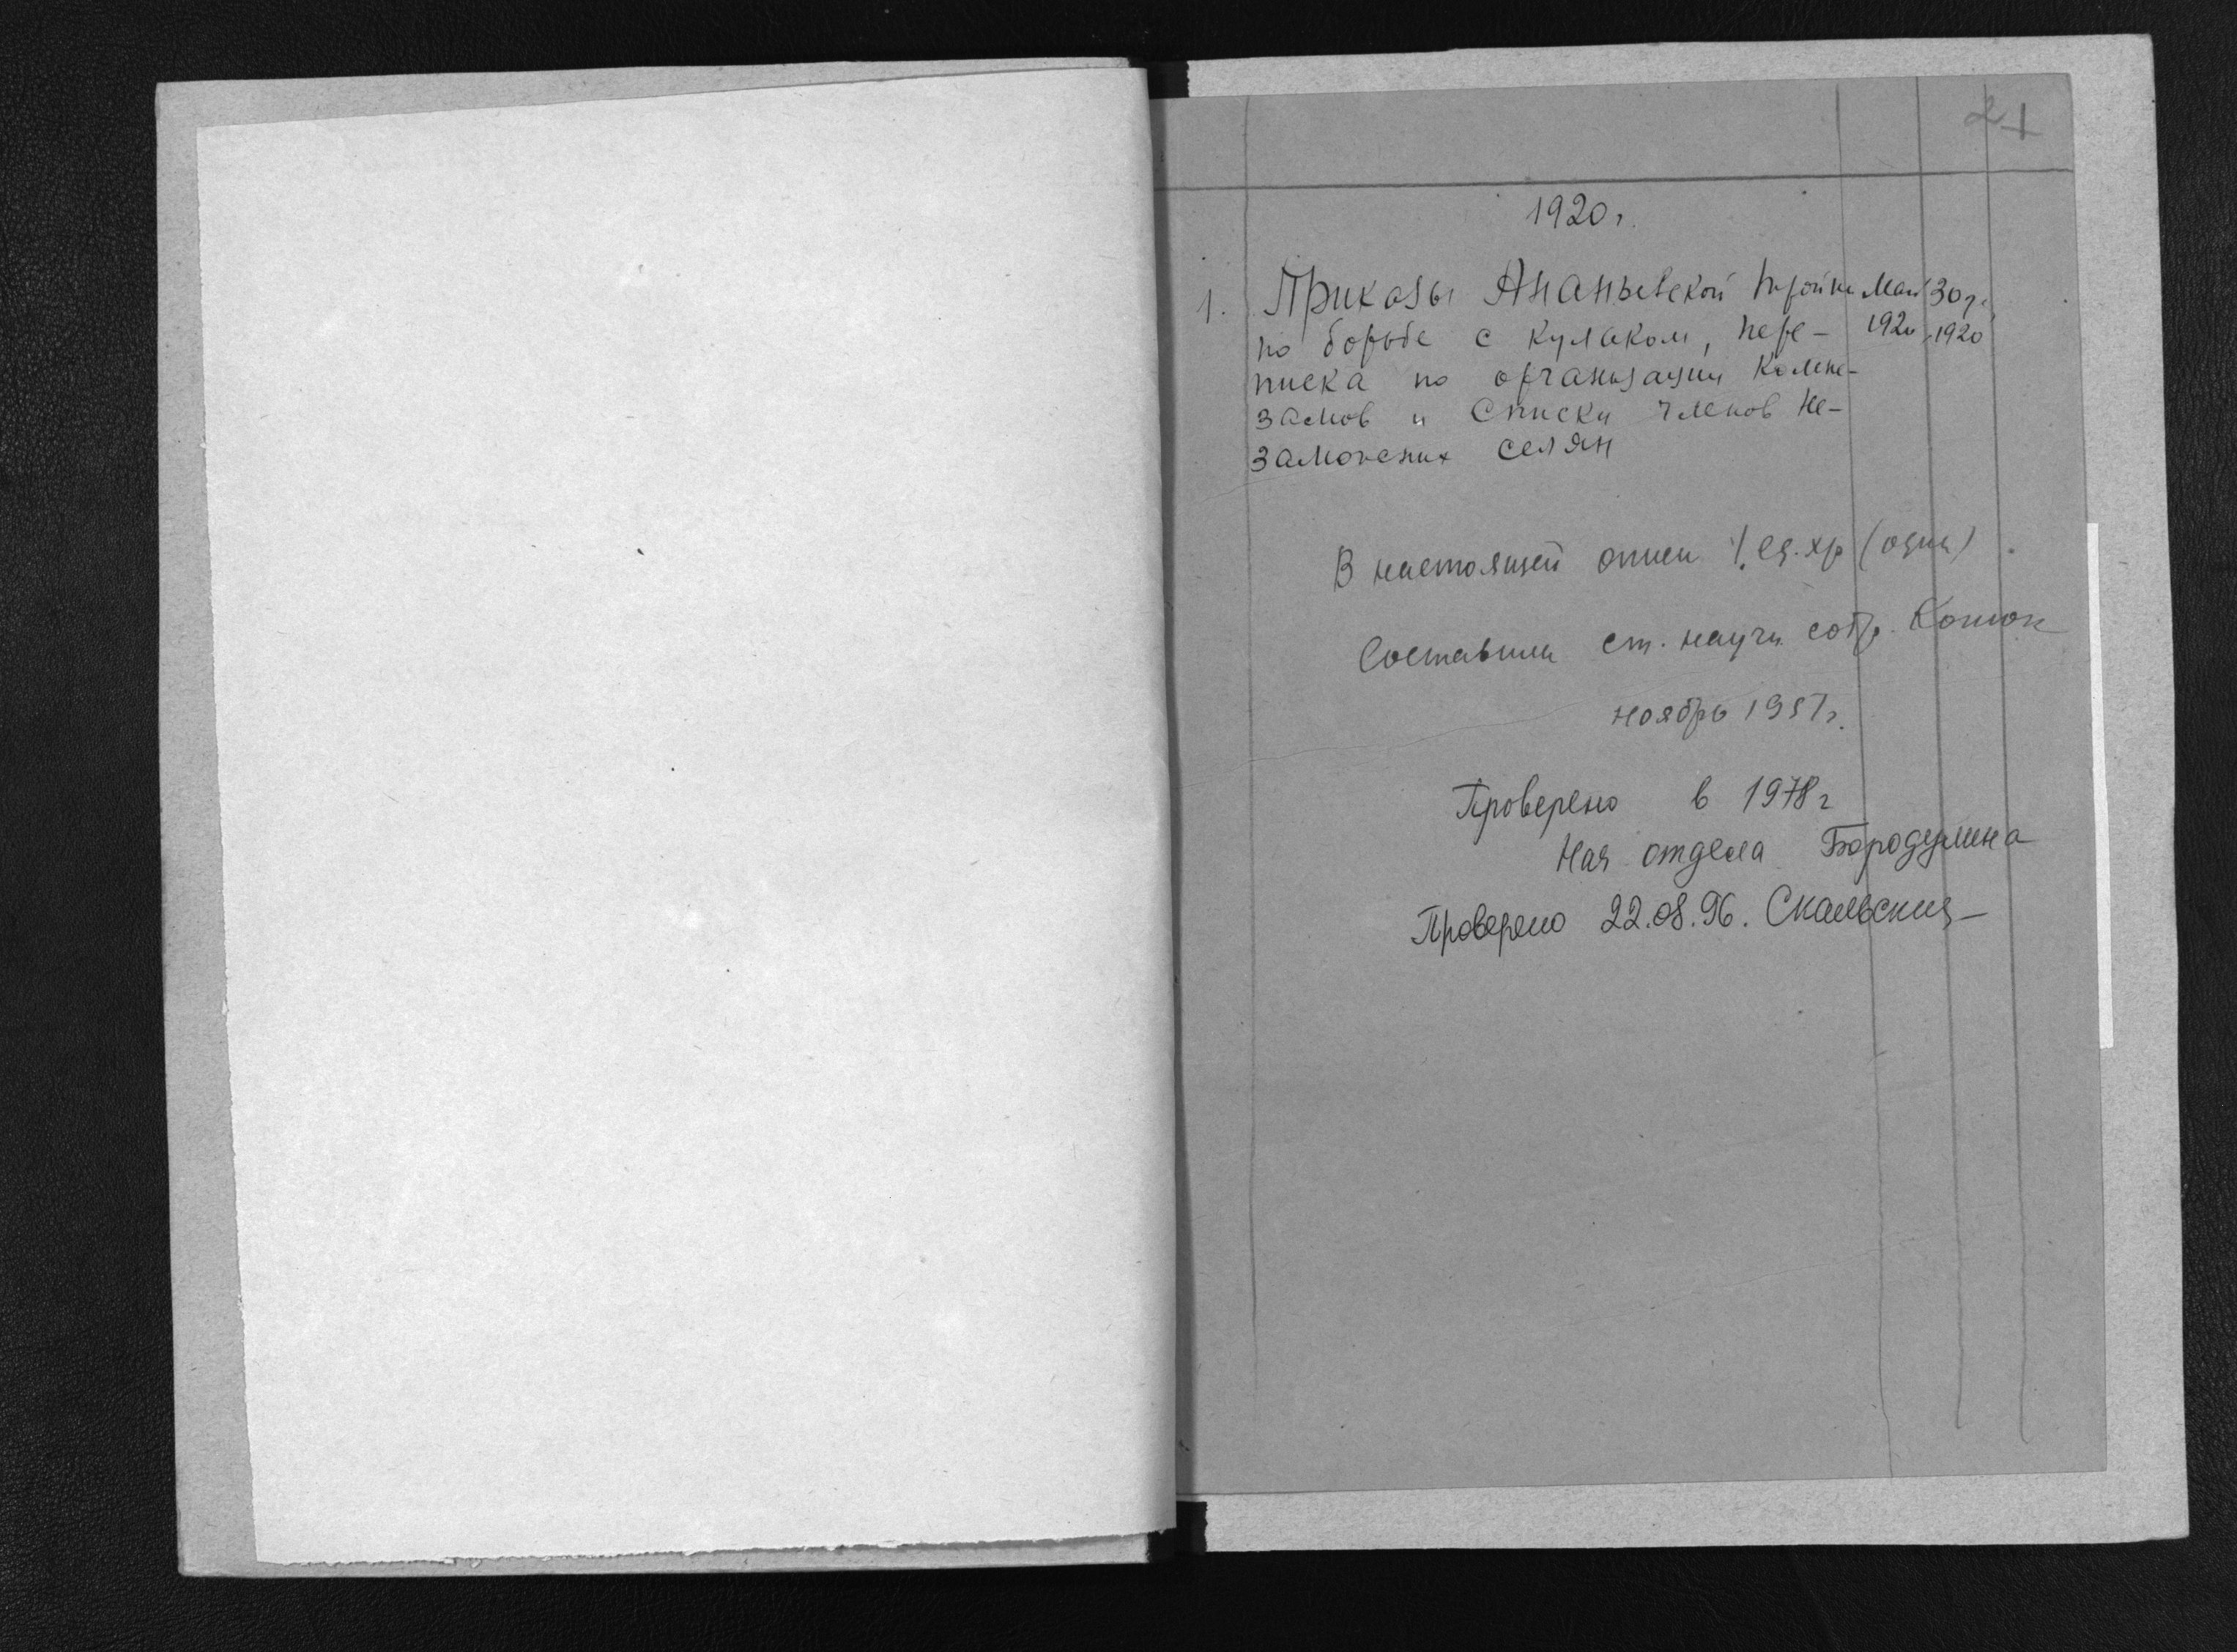 1920 г.
1. Приказы Ананьевской тройки Май 30 г.
по борьбе с кулаком, пере- 1920 1920
писка по организации Комне-
замов и списки членов Не-
заможних селян
В настоящей описи 1 ед. хр (одна)
Составила ст. научн. сотр.
ноябрь 1957 г.
Проверено в 1978 г
Нач отдела Бородулина
Проверено 22.08.96. Скальский